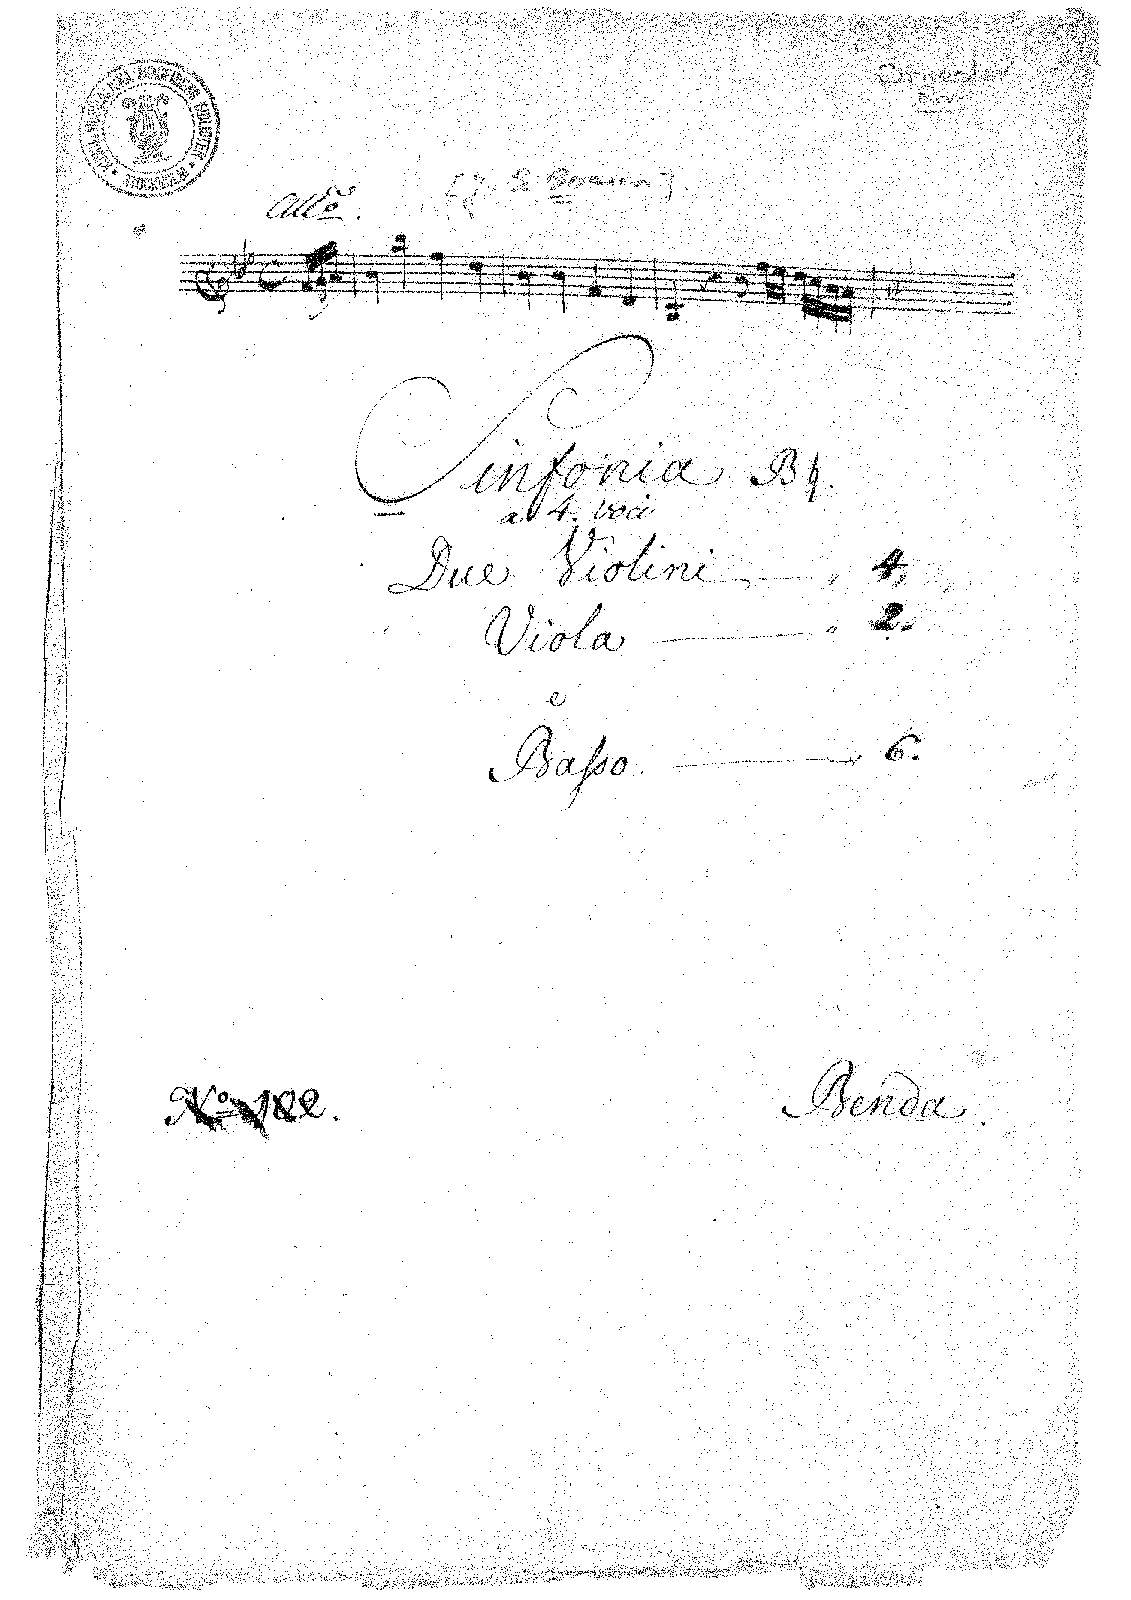 All.º
Sinfonia B♮.
a. 4. voci
Due Violini 4,
Viola 2.
e
Basso. 6.
Nº 122.
Benda.